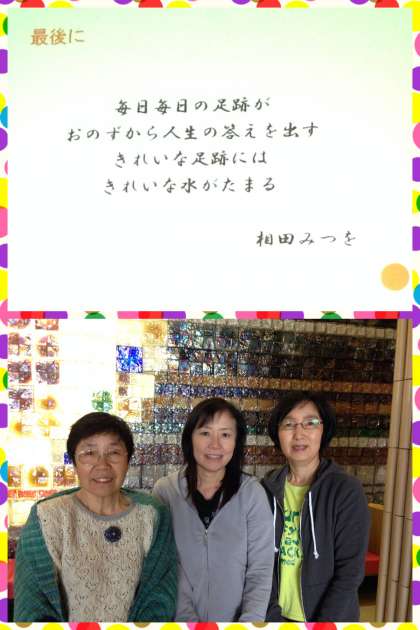 最後に
毎日毎日の足跡が
おのずから人生の答えを出す
きれいな足跡には
きれいな水がたまる
相田みつを